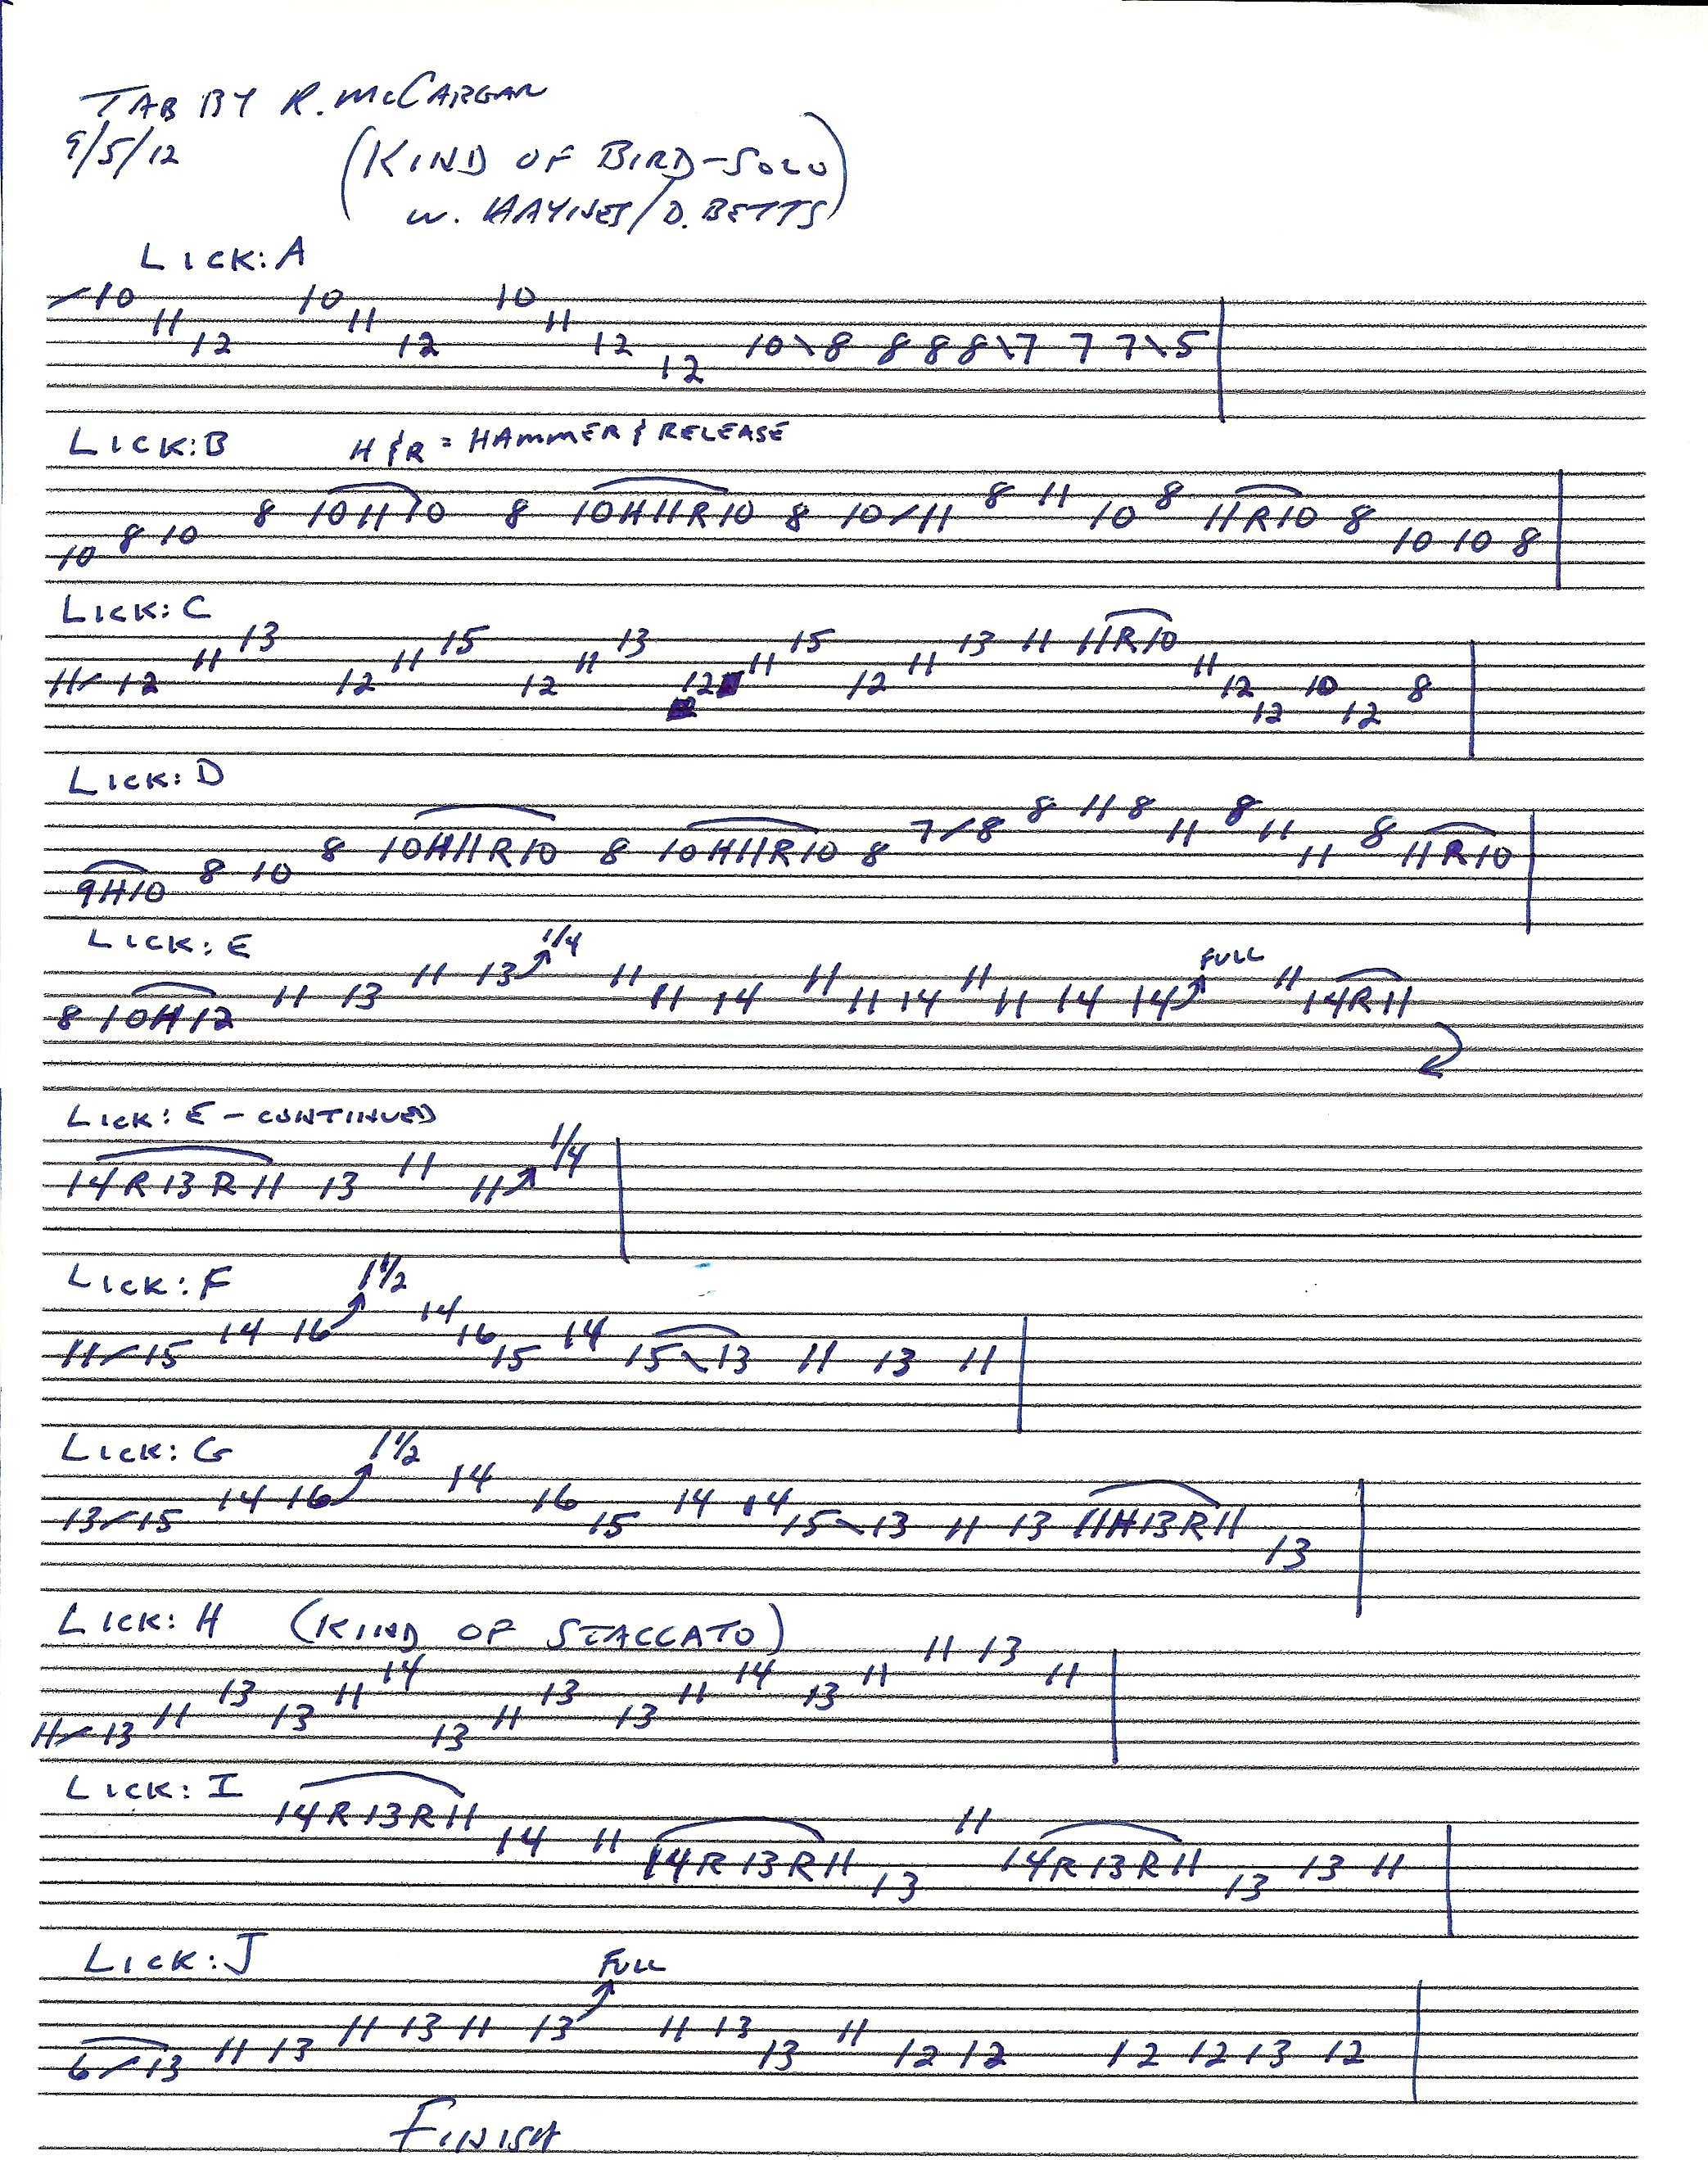 TAB BY R. McCARGAR
9/5/12
(KIND OF BIRD-SOLO
W. HAYNES/D. BETTS)
LICK: A
/10 11 12 10 11 12 10 11 12 12 10\8 8 8 8\7 7 7\5
LICK: B H & R = HAMMER & RELEASE
10 8 10 8 10 H 11 R 10 8 10H11R10 8 10/11 8 11 10 8 11R10 8 10 10 8
LICK: C
11/12 11 13 12 11 15 12 11 13 12 11 15 12 11 13 11 11R10 11 12 12 10 12 8
LICK: D
9H10 8 10 8 10H11R10 8 10H11R10 8 7/8 8 11 8 11 8 11 11 8 11R10
LICK: E
8 10H12 11 13 11 13 1/4 11 11 14 11 11 14 11 11 14 14 FULL 11 14R11
LICK: E - CONTINUED
14R13R11 13 11 11 1/4
LICK: F
11/15 14 16 1 1/2 14 16 15 14 15\13 11 13 11
LICK: G
13/15 14 16 1 1/2 14 16 15 14 14 15\13 11 13 11H13R11 13
LICK: H (KIND OF STACCATO)
11/13 11 13 13 11 14 13 11 13 13 11 14 13 11 11 13 11
LICK: I
14R13R11 14 11 14R13R11 13 11 14R13R11 13 13 11
LICK: J
6/13 11 13 11 13 11 13 FULL 11 13 13 11 12 12 12 12 13 12
FINISH